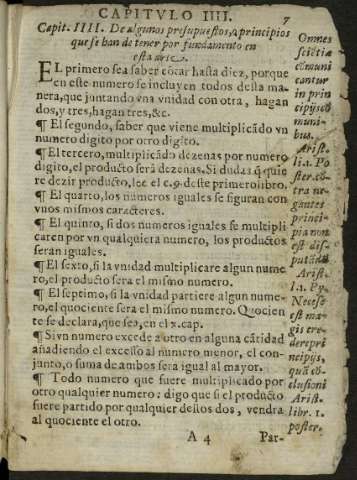 CAPITVLO IIII.
7
Capit. IIII. De algunos presupuestos, o principios
que se han de tener por fundamento en
esta arte.
EL primero sea saber cōtar hasta diez, porque
en este numero se incluyen todos desta ma-
nera, que juntando vna vnidad con otra, hagan
dos, y tres, hagan tres, &c.
¶ El segundo, saber que viene multiplicādo vn
numero digito por otro digito.
¶ El tercero, multiplicādo dezenas por numero
digito, el producto serà dezenas. Si dudas q̄ quie
re dezir producto, lee el c. 9. deste primero libro.
¶ El quarto, los numeros iguales se figuran con
vnos mismos caracteres.
¶ El quinto, si dos numeros iguales se multipli
caren por vn qualquiera numero, los productos
seran iguales.
¶ El sexto, si la vnidad multiplicare algun nume
ro, el producto sera el mismo numero.
¶ El septimo, si la vnidad partiere algun nume-
ro, el quociente sera el mismo numero. Quocien
te se declara, que sea, en el x. cap.
¶ Si vn numero excede a otro en alguna cātidad
añadiendo el excesso al numero menor, el con-
junto, o suma de ambos sera igual al mayor.
¶ Todo numero que fuere multiplicado por
otro qualquier numero: digo que si el producto
fuere partido por qualquier destos dos, vendra
al quociente el otro.
A 4
Par-
Omnes
sciētiæ
cōmuni
cantur
in prin
cipijs cō
muni-
bus.
Arist.
li. 1. Po
ster. cō
tra ne-
gantes
princi-
pia non
est dis-
putādū
Arist.
l. 1. Py.
Necesse
est ma-
gis cre-
dere pri
ncipijs,
quā cō-
clusioni
Arist.
libr. 1.
poster.